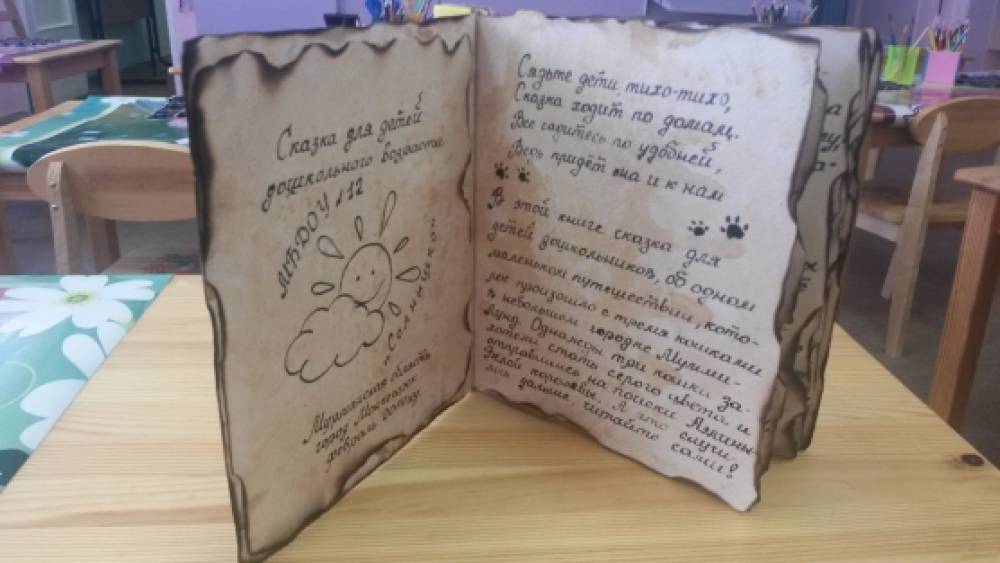 Сказка для детей
дошкольного возраста
МБДОУ №12
"Солнышко"
Мурманская область
город Мончегорск
февраль
Сядьте дети, тихо-тихо,
Сказка ходит по домам.
Все садитесь по удобней,
Ведь придёт она и к нам
В этой книге сказка для
детей дошкольников, об одном
маленьком путешествии, кото-
рое произошло с тремя кошками
в небольшом городке Мууми-
Лунд. Однажды три кошки за-
хотели стать серого цвета и
отправились на поиски
Белой королевы. А что случи
лось дальше, читайте сами!